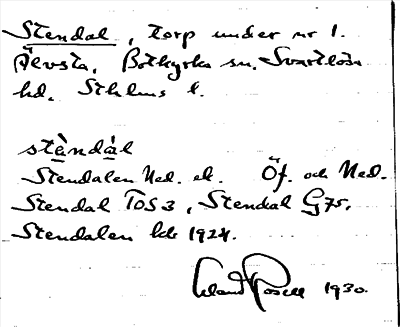 Stendal, torp under nr 1.
Älvsta, Botkyrka sn. Svartlösa
hd. Sthlms l.
stèndál
Stendalen Ned. el. Öf. och Ned.
Stendal TOS 3, Stendal G75.
Stendalen kb 1924.
Erland Rosell 1930.